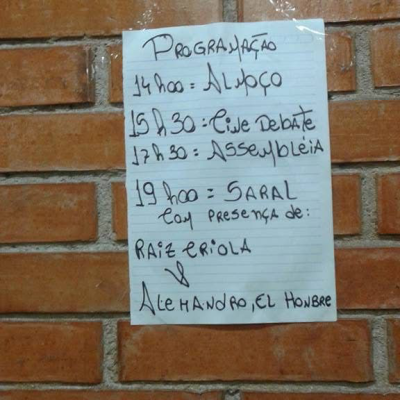 PROGRAMAÇÃO
14h00 = ALMOÇO
15h30 = CINE DEBATE
17h30 = ASSEMBLÉIA
19h00 = SARAL
COM PRESENÇA DE:
RAIZ CRIOLA
&
ALEMANDRO, EL HONBRE